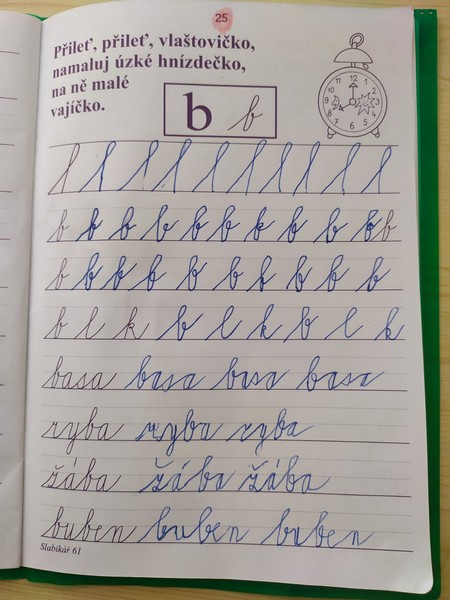 25
Přileť, přileť, vlaštovičko,
namaluj úzké hnízdečko,
na ně malé
vajíčko.
b b
12 1 2 3 4 5 6 7 8 9 10 11
l l l l l l l l l l
b b b b b b b b b b b
b b b b b b b b b b
b l k b l k b l k
basa basa basa basa
ryba ryba ryba
žába žába žába
buben buben buben
Slabikář 61